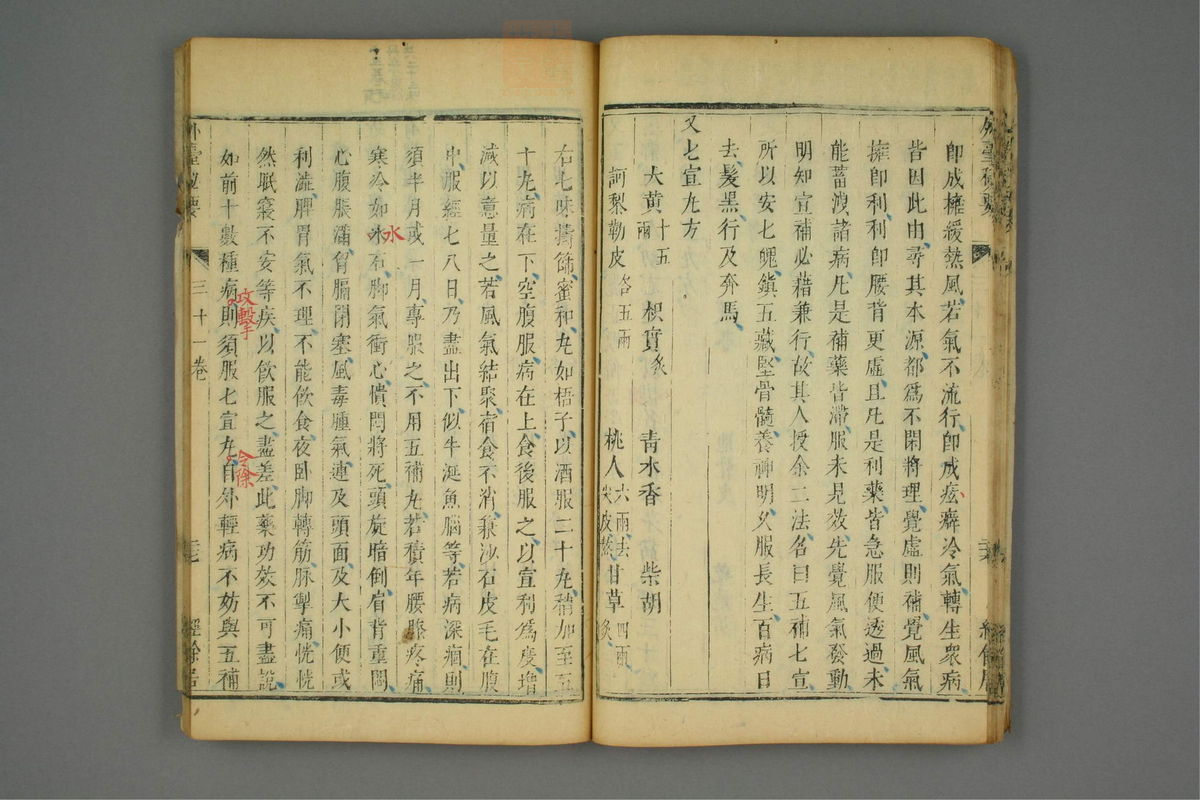 即成擁緩熱風若氣不流行即成痃癖冷氣轉生衆病
皆因此由尋其本源都爲不閑將理覺虛則補覺風氣
擁即利利即腰背更虛且凡是利藥皆急服便透過未
能蓄洩諸病凡是補藥皆滯服未見效先覺風氣發動
明知宣補必藉兼行故其人授余二法名曰五補七宣
所以安七魄鎭五藏堅骨髓養神明久服長生百病日
去髮黑行及奔馬
又七宣丸方
大黃十五兩 枳實炙 青木香 柴胡
訶梨勒皮各五兩 桃人六兩去尖皮熬 甘草四兩炙
右七味擣篩蜜和丸如梧子以酒服二十丸稍加至五
十丸病在下空腹服病在上食後服之以宣利爲度增
減以意量之若風氣結聚宿食不消兼沙石皮毛在腹
中服經七八日乃盡出下似牛涎魚腦等若病深痼則
須半月或一月專服之不用五補丸若積年腰膝疼痛
寒冷如冰石脚氣衝心憒悶將死頭旋暗倒肩背重悶
水
心腹脹滿胷膈閉塞風毒腫氣連及頭面及大小便或
利澁脾胃氣不理不能飲食夜卧脚轉筋脉掣痛恍恍
然眠寢不安等疾以飲服之盡差此藥功效不可盡說
如前十數種病則須服七宣丸自外輕病不妨與五補
攻擊于
外臺秘要
三十一卷
經餘居